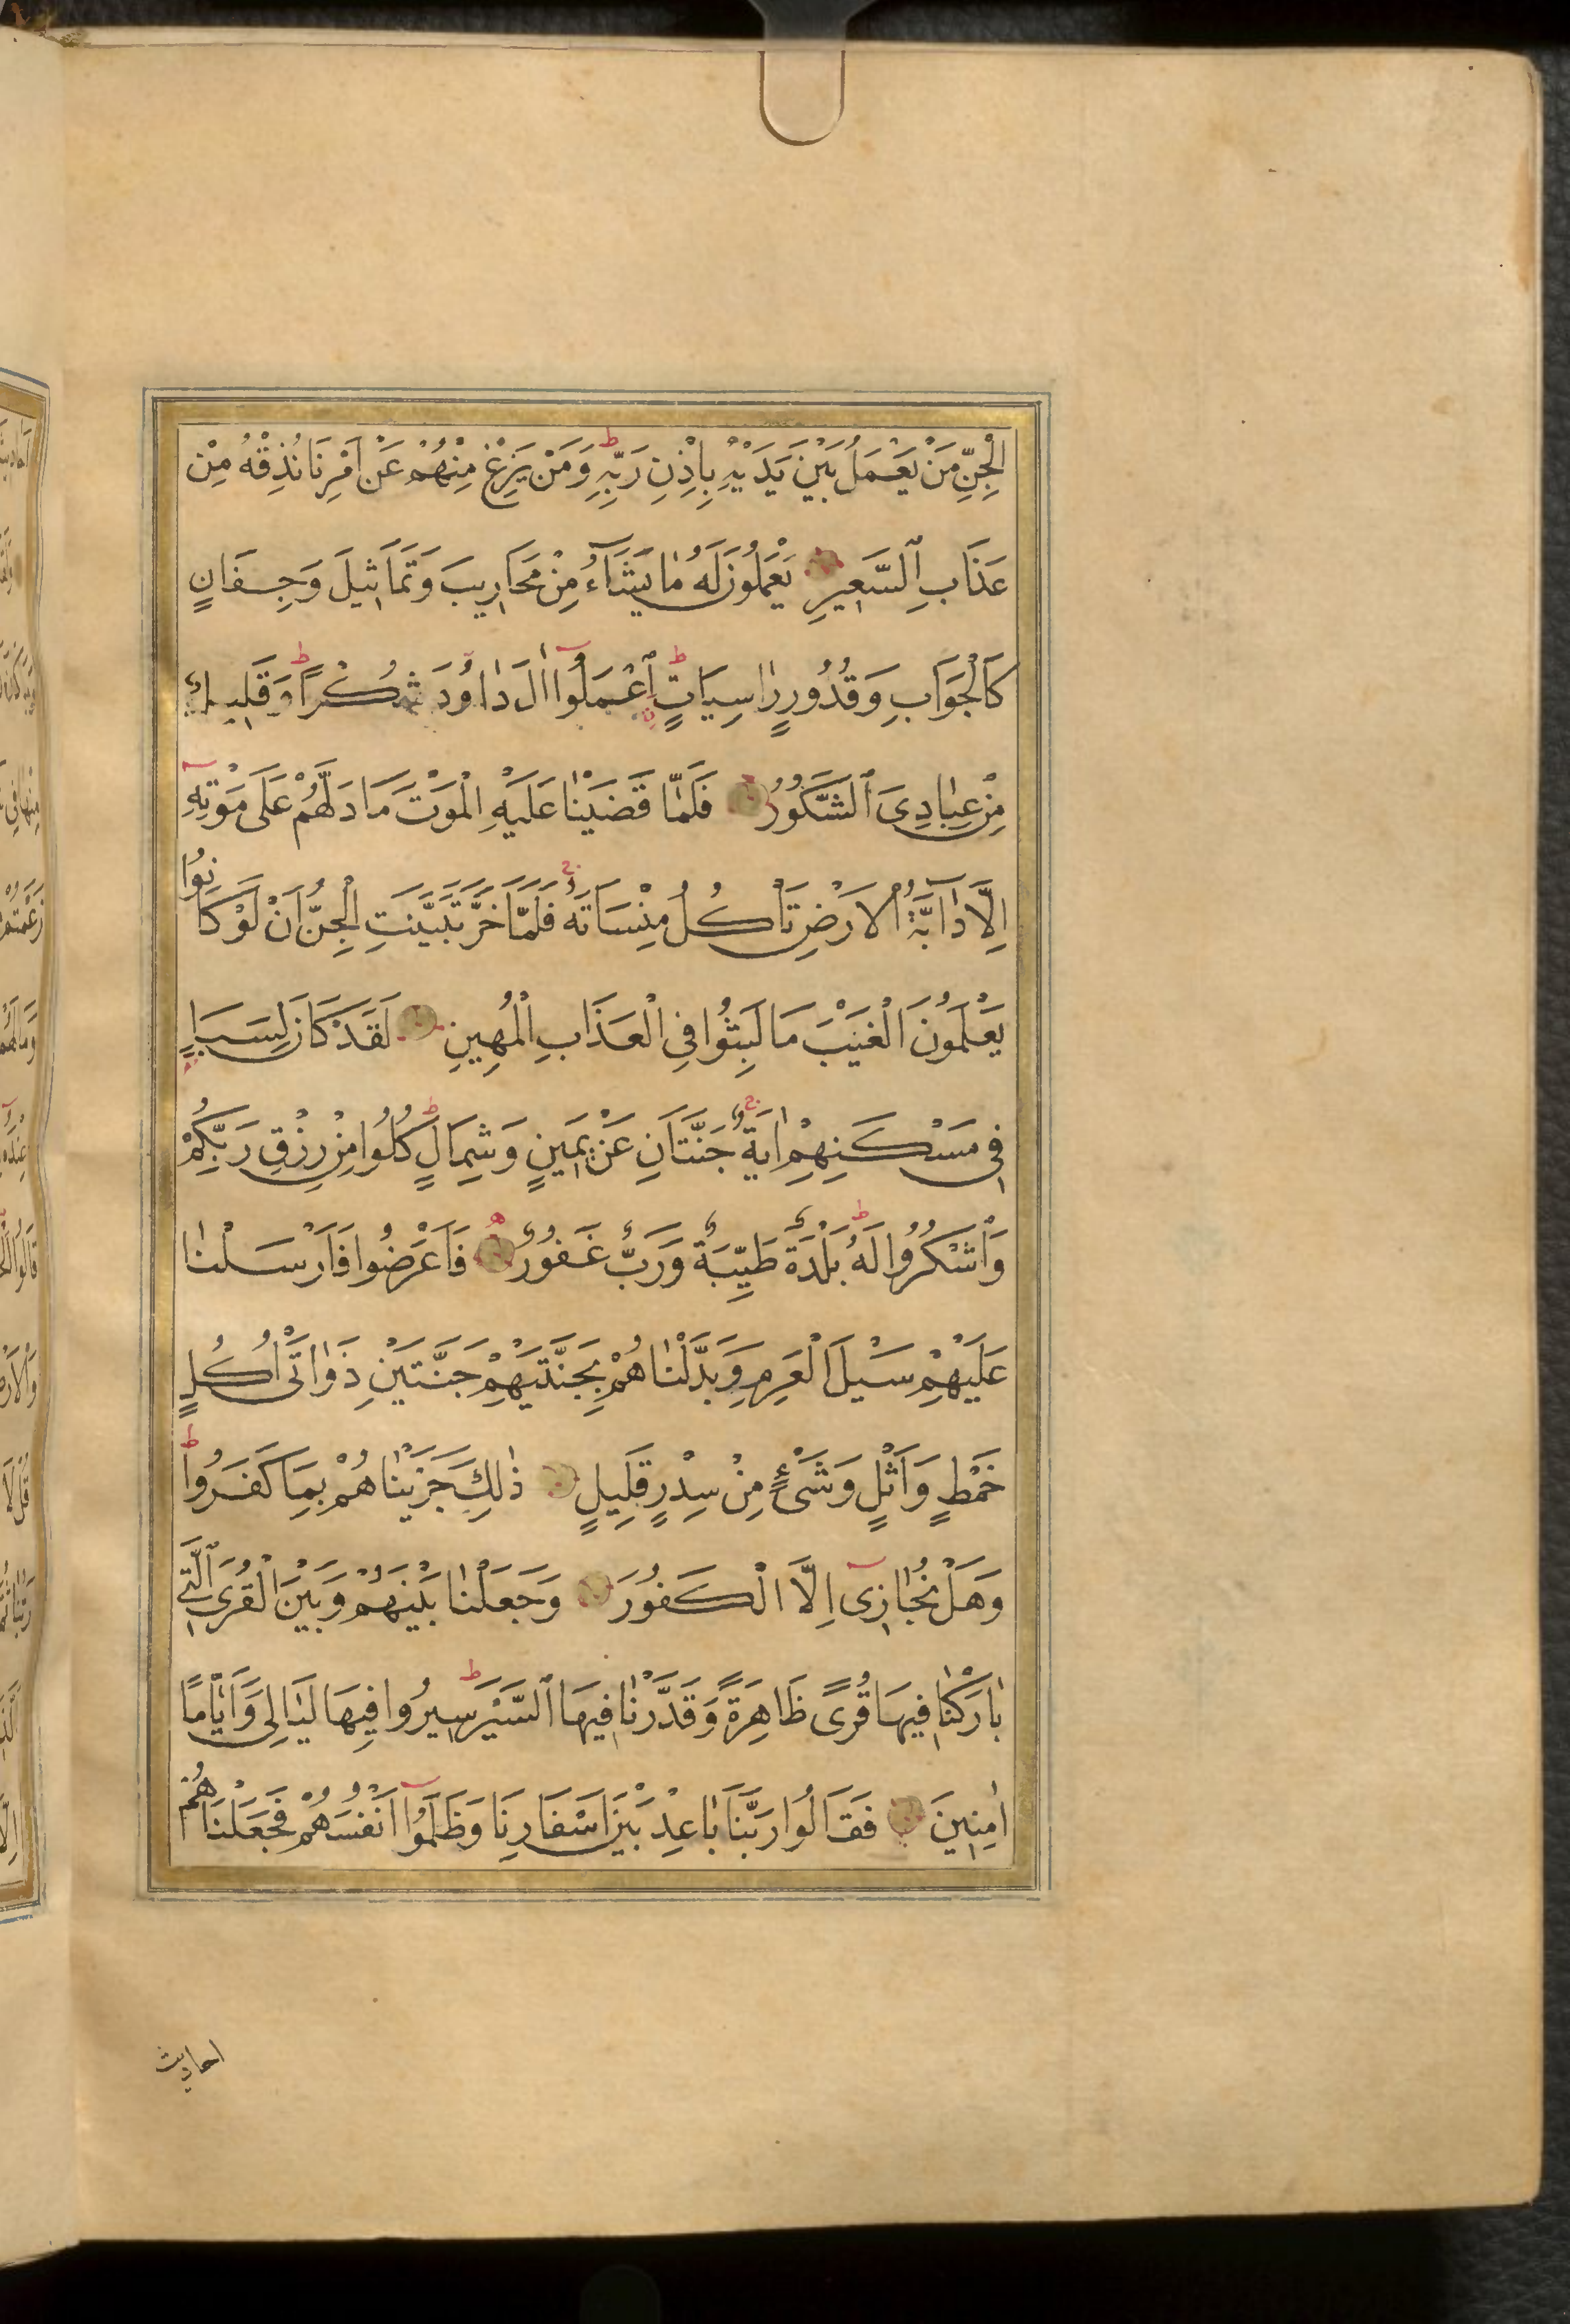 الْجِنِّ مَنْ يَعْمَلُ بَيْنَ يَدَيْهِ بِاِذْنِ رَبِّهِ ط وَمَنْ يَزِغْ مِنْهُمْ عَنْ اَمْرِنَا نُذِقْهُ مِنْ
عَذَابِ السَّعِيرِ يَعْمَلُونَ لَهُ مَا يَشَٓاءُ مِنْ مَحَارِيبَ وَتَمَاثِيلَ وَجِفَانٍ
كَالْجَوَابِ وَقُدُورٍ رَاسِيَاتٍ ط اِعْمَلُٓوا اٰلَ دَاوُدَ شُكْرًا ط وَقَلِيلٌ
مِنْ عِبَادِيَ الشَّكُورُ فَلَمَّا قَضَيْنَا عَلَيْهِ الْمَوْتَ مَا دَلَّهُمْ عَلَى مَوْتِهِٓ
اِلَّا دَٓابَّةُ الْاَرْضِ تَاْكُلُ مِنْسَاَتَهُ ج فَلَمَّا خَرَّ تَبَيَّنَتِ الْجِنُّ اَنْ لَوْ كَانُوا
يَعْلَمُونَ الْغَيْبَ مَا لَبِثُوا فِي الْعَذَابِ الْمُهِينِ لَقَدْ كَانَ لِسَبَاٍ
فِي مَسْكَنِهِمْ اٰيَةٌ ج جَنَّتَانِ عَنْ يَمِينٍ وَشِمَالٍ ط كُلُوا مِنْ رِزْقِ رَبِّكُمْ
وَاشْكُرُوا لَهُ ط بَلْدَةٌ طَيِّبَةٌ وَرَبٌّ غَفُورٌ ه فَاَعْرَضُوا فَاَرْسَلْنَا
عَلَيْهِمْ سَيْلَ الْعَرِمِ وَبَدَّلْنَاهُمْ بِجَنَّتَيْهِمْ جَنَّتَيْنِ ذَوَاتَىْ اُكُلٍ
خَمْطٍ وَاَثْلٍ وَشَىْءٍ مِنْ سِدْرٍ قَلِيلٍ ذٰلِكَ جَزَيْنَاهُمْ بِمَا كَفَرُوا ط
وَهَلْ نُجَازِٓى اِلَّا الْكَفُورَ وَجَعَلْنَا بَيْنَهُمْ وَبَيْنَ الْقُرَى الَّتِي
بَارَكْنَا فِيهَا قُرًى ظَاهِرَةً وَقَدَّرْنَا فِيهَا السَّيْرَ ط سِيرُوا فِيهَا لَيَالِيَ وَاَيَّامًا
اٰمِنِينَ فَقَالُوا رَبَّنَا بَاعِدْ بَيْنَ اَسْفَارِنَا وَظَلَمُٓوا اَنْفُسَهُمْ فَجَعَلْنَاهُمْ
احاديث